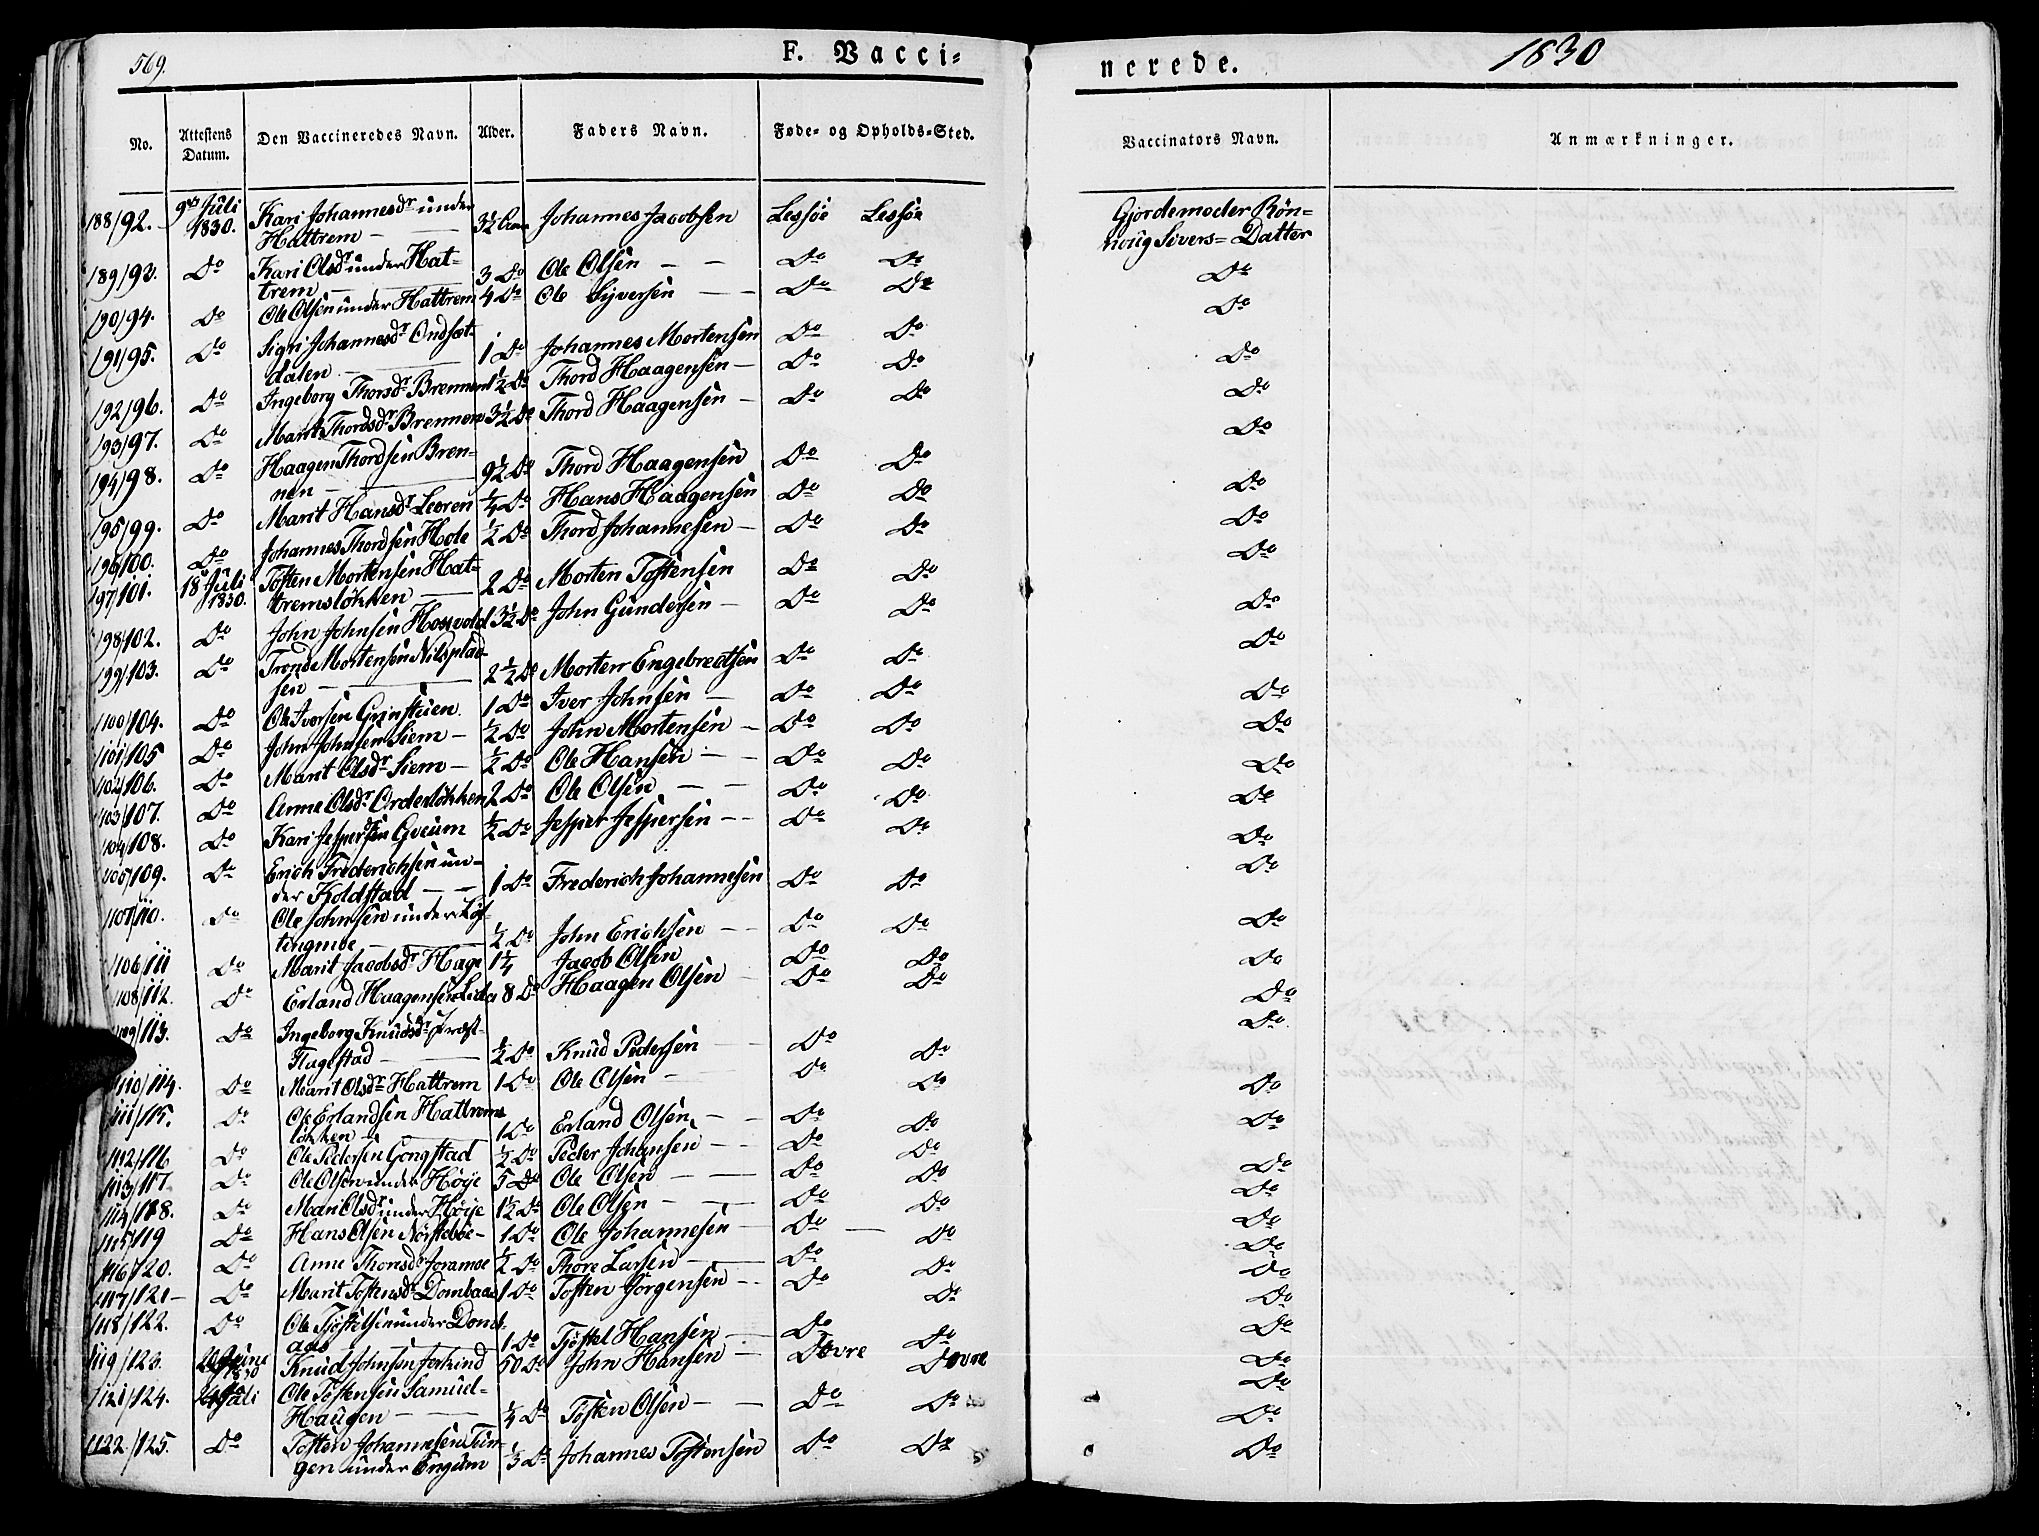 569.
F. Vacci-
nerede.
1830
No. Attestens Datum. Den Vaccineredes Navn. Alder. Faders Navn. Føde- og Opholds-Sted. Vaccinators Navn. Anmærkninger.
188/92. 9de Juli 1830. Kari Johannesdr under 3½ Johannes Jacobsen Lessøe Lessøe Gjordemoder Rön-
Hattrem — noug Sivers= Datter
189/93. Do Kari Olsdr under Hat- 3 Do Ole Olsen — — Do Do Do
trem —
190/94. Do Ole Olsen under Hattrem 4 Do Ole Syversen — — Do Do Do
191/95. Do Sigri Johannesdr Ondsæt- 1 Do Johannes Mortensen Do Do Do
dalen —
192/96. Do Ingeborg Thorsdr Brennen 1½ Do Thord Haagensen — Do Do Do
193/97. Do Marit Thordsdr Brennen 3½ Do Thord Haagensen — Do Do Do
194/98. Do Haagen Thordsen Bren- 9½ Do Thord Haagensen Do Do Do
nen —
195/99. Do Marit Hansdr Leeren ¼ Do Hans Haagensen Do Do Do
196/100. Do Johannes Thordsen Hole ½ Do Thord Johannesen — Do Do Do
197/101. 18 Juli 1830. Tosten Mortensen Hat- 2 Do Morten Tostensen Do Do Do
tremsløkken —
198/102. Do John Johnsen Hosevold 3½ Do John Gundersen — Do Do Do
199/103. Do Trond Mortensen Nilsplad- 2½ Do Morten Engebretsen Do Do Do
sen —
1100/104. Do Ole Iversen Grinstuen 1 Do Iver Johnsen — Do Do Do
1101/105 Do John Johnsen Siem — ½ Do John Mortensen — Do Do Do
1102/106. Do Marit Olsdr Siem — ½ Do Ole Hansen — — Do Do Do
1103/107. Do Anne Olsdr Orderløkken 2 Do Ole Olsen — — Do Do Do
1104/108. Do Kari Jespersen Qveum ½ Do Jesper Jespersen — — Do Do Do
1105/109. Do Erich Frederichsen un- 1 Do Frederich Johannesen Do Do Do
der Koldstad — —
1107/110. Do Ole Johnsen under Løf- ½ Do John Erichsen — — Do Do Do
tingmoe —
1106/111 Do Marit Jacobsdr Hage 1¼ Jacob Olsen Do Do Do
1108/112. Do Erland Haagensen Lid 8 Do Haagen Olsen — Do Do Do
1109/113. Do Ingeborg Knudsdr ½ Do Knud Pedersen — Do Do Do
Flugestad —
1110/114. Do Marit Olsdr Hattrem 1 Do Ole Olsen — Do Do Do
1111/115. Do Ole Erlandsen Hattrems 1 Do Erland Olsen — — Do Do Do
løkken —
1112/116 Do Ole Pedersen Gongstad ½ Do Peder Johansen — — Do Do Do
1113/117. Do Ole Olsen under Høye 5 Do Ole Olsen — — Do Do Do
1114/118. Do Mari Olsdr under Høye 1½ Do Ole Olsen — — Do Do Do
1115/119 Do Hans Olsen Nørsteboe — 1 Do Ole Johannesen — Do — Do Do
1116/120. Do Anne Thorsdr Joramoe ½ Do Thore Larsen — Do Do Do
1117/121 — Do Marit Tostensdr Dombaas 1 Do Tosten Jörgensen — — Do Do Do
1118/122. Do Ole Tjøstelsen under Dom- 1 Do Tjøstel Hansen — Do Do Do
aas —
1119/123. 20 Juni 1830 Knud Johnsen Jerkind 50 Do John Hansen — Dovre Dovre Do
1121/124. 24 Juli Ole Tostensen Samuel- ¼ Do Tosten Olsen — — Do Do Do
Haugen — —
1122/125. Do Tosten Johannesen Tun- ⅓ Do Johannes Tostensen Do Do Do
gen under Engum